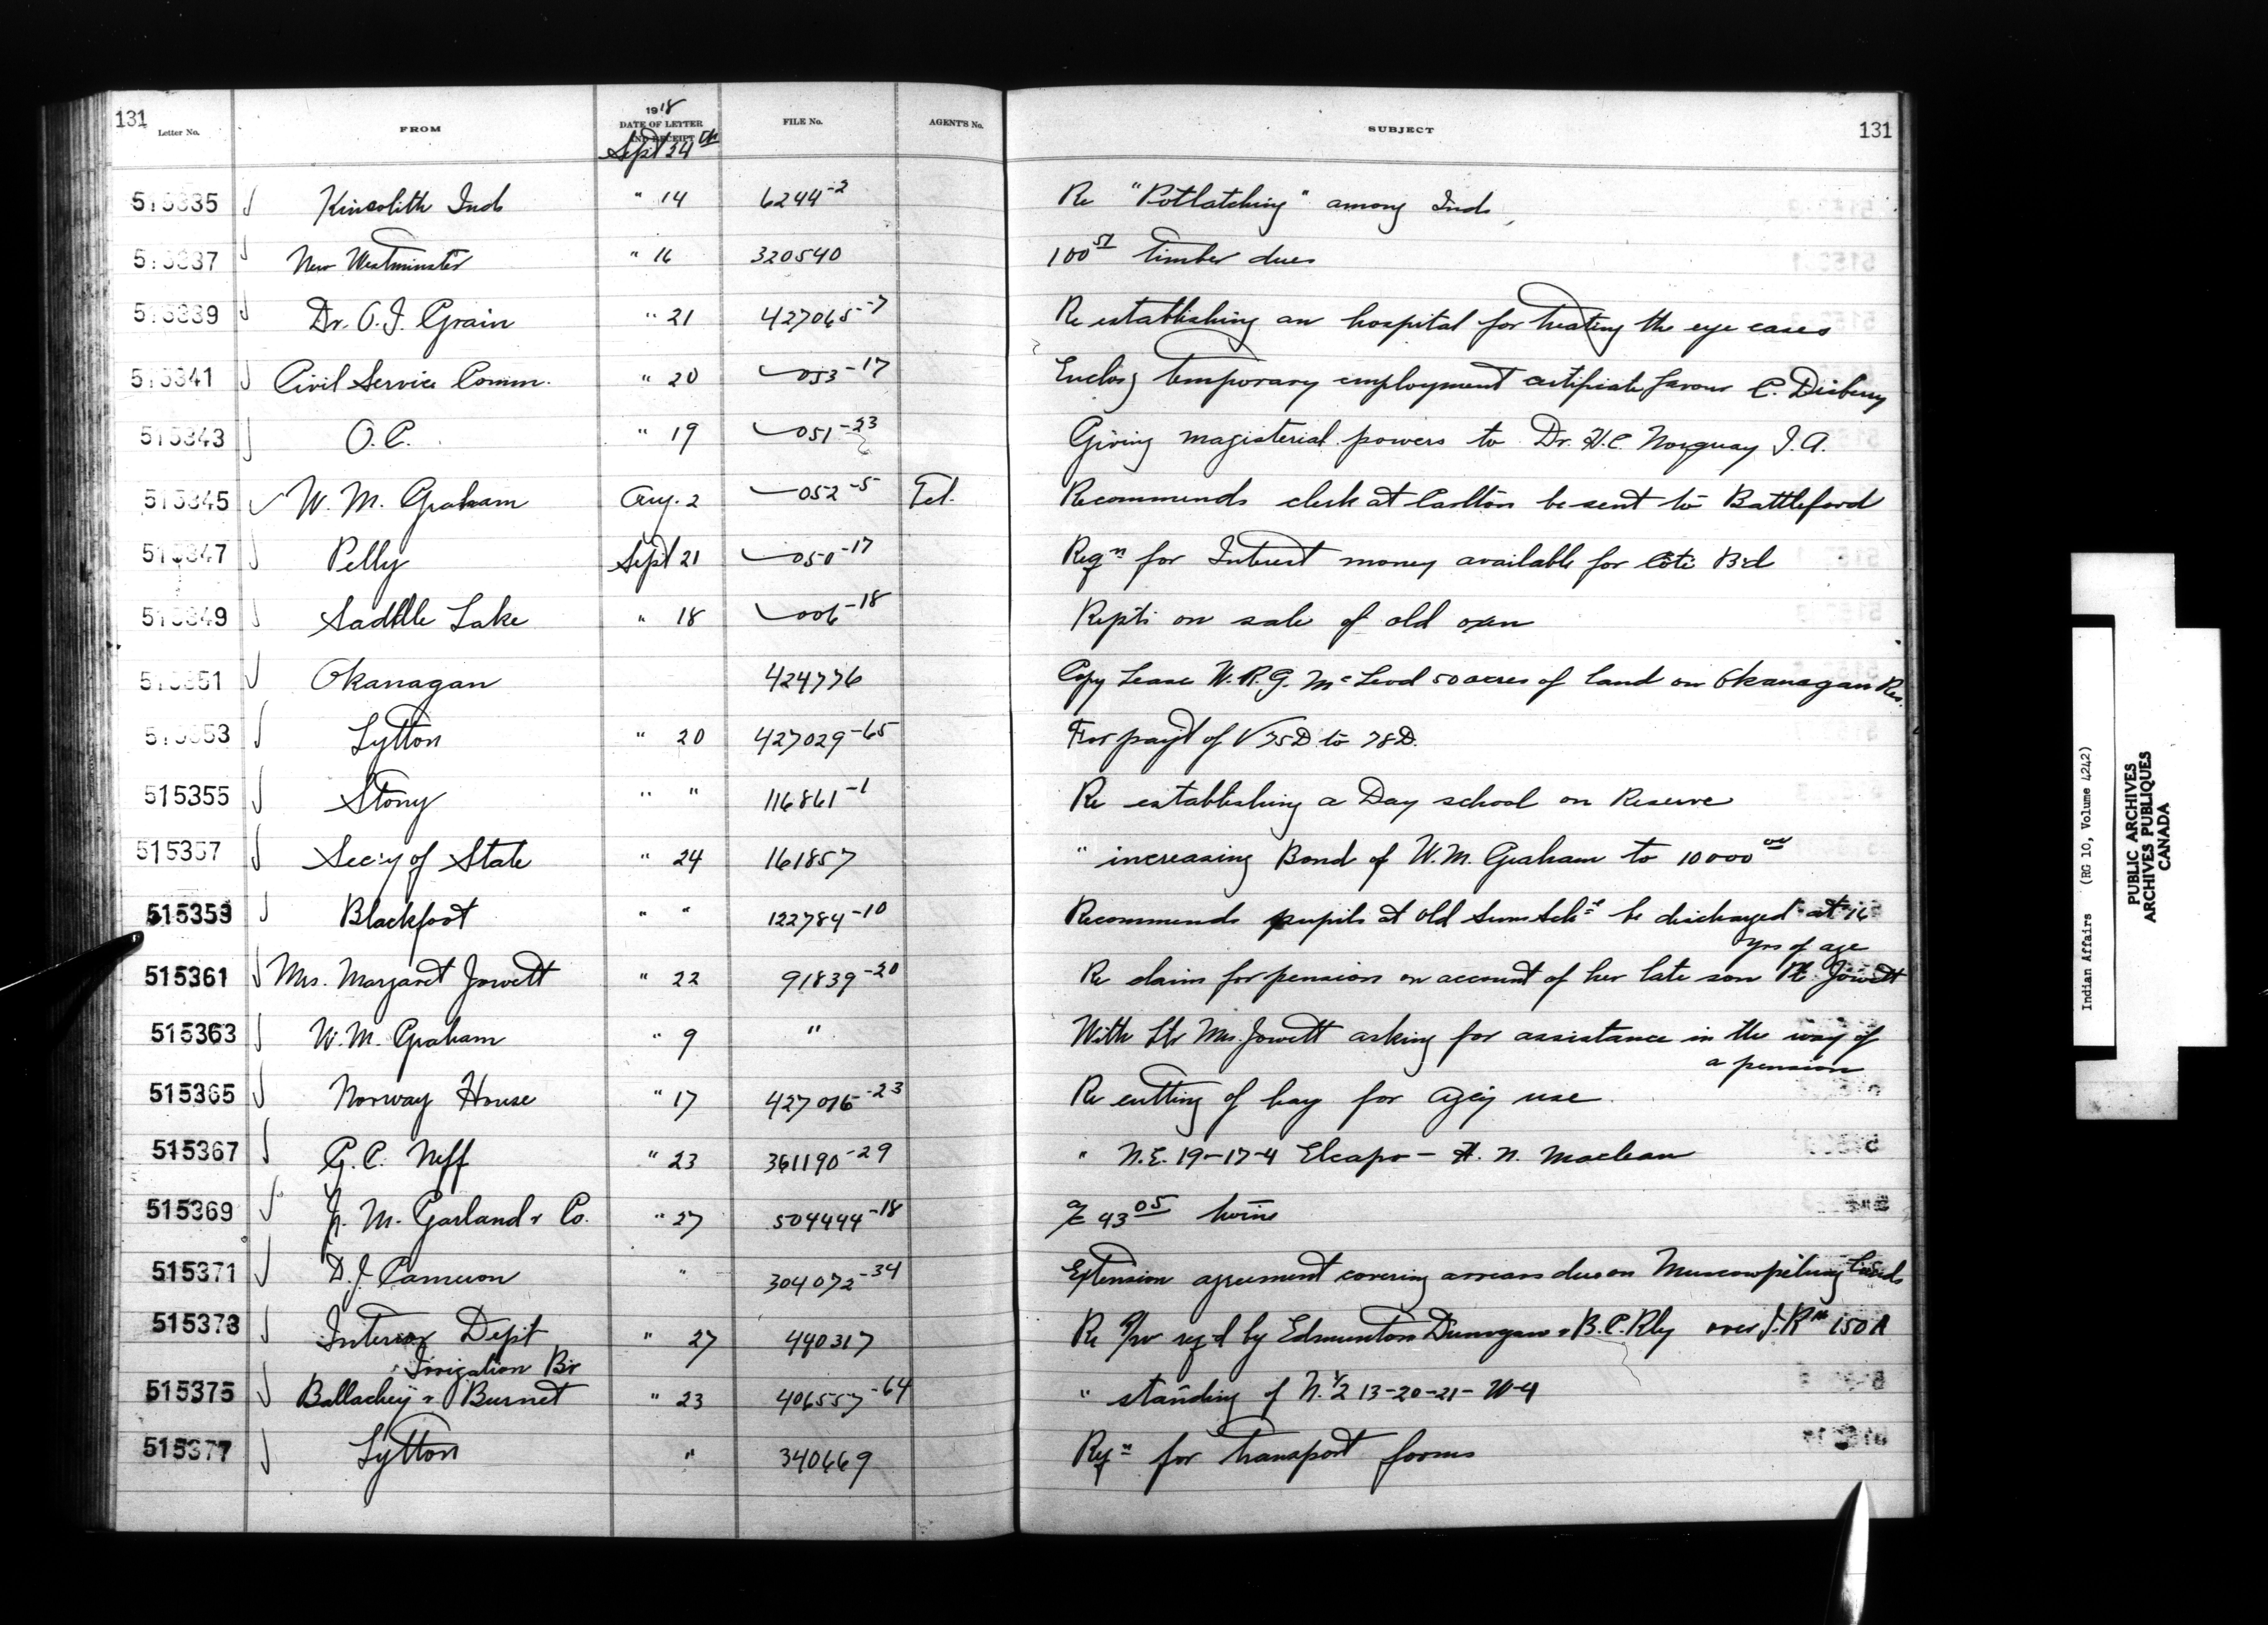 131
Letter No. FROM 1918 DATE OF LETTER AND RECEIPT FILE No. AGENT'S No. SUBJECT 131
Sept 24th
515335 Kincolith Inds " 14 6244-2 Re "Potlatching" among Inds
515337 New Westminster " 16 320540 100 51 timber dues
515339 Dr. O.I. Grain " 21 427065-7 Re establishing an hospital for treating the eye cases
515341 Civil Service Comm. " 20 053-17 Enclosg temporary employment certificate favour C. Disberry
515343 O.C. " 19 051-23 Giving magisterial powers to Dr. H.C. Norquay I.A.
515345 W. M. Graham Aug. 2 052-5 Tel. Recommends clerk at Carlton be sent to Battleford
515347 Pelly Sept 21 050-17 Reqn for Interest money available for Cote Bd
515349 Saddle Lake " 18 006-18 Repts on sale of old oxen
515351 Okanagan 424776 Copy Lease W.R.G. McLeod 50 acres of land on Okanagan Res.
515353 Lytton " 20 427029-65 For payt of V 75D to 78D.
515355 Stony " " 116861-1 Re establishing a Day school on Reserve
515357 Secy of State " 24 161857 " increasing Bond of W.M. Graham to 10000 00
515359 Blackfoot " " 122784-10 Recommends pupils at Old Suns Schl be discharged at 16
yrs of age
515361 Mrs. Margaret Jowett " 22 91839-20 Re claim for pension on account of her late son Pt. Jowett
515363 W. M. Graham " 9 " With ltr Mrs. Jowett asking for assistance in the way of
a pension
515365 Norway House " 17 427016-23 Re cutting of hay for agcy use
515367 G. C. Neff " 23 361190-29 " N.E. 19-17-4 Elcapo - A. N. Maclean
515369 J. M. Garland & Co. " 27 504444-18 a/c 93 05 twine
515371 D.J. Cameron " 304072-34 Extension agreement covering arrears due on Muscowpetung Lands
515373 Interior Dept " 27 440317 Re R/w reqd by Edmonton Dunvegan & B.C. Rly over I.Rs 150A
Irrigation Br
515375 Ballachey & Burnet " 23 406557-64 " standing of N.1/2 13-20-21-W4
515377 Lytton " 340669 Reqn for transport forms
Indian Affairs (RG 10, Volume 4242)
PUBLIC ARCHIVES
ARCHIVES PUBLIQUES
CANADA